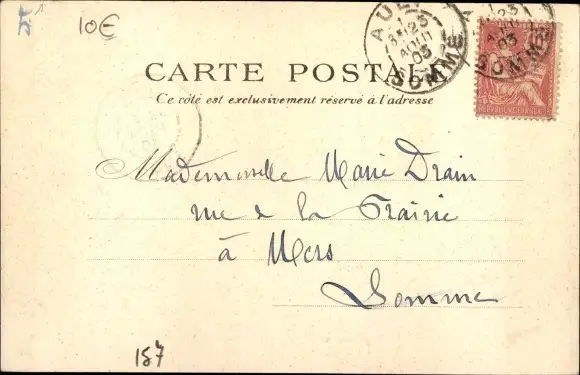 10€
AULT
23
AOUT
03
SOMME
23
AOUT
03
SOMME
CARTE POSTALE
Ce côté est exclusivement réservé à l'adresse
Mademoiselle Marie Drain
rue de la Prairie
à Mers
Somme
157